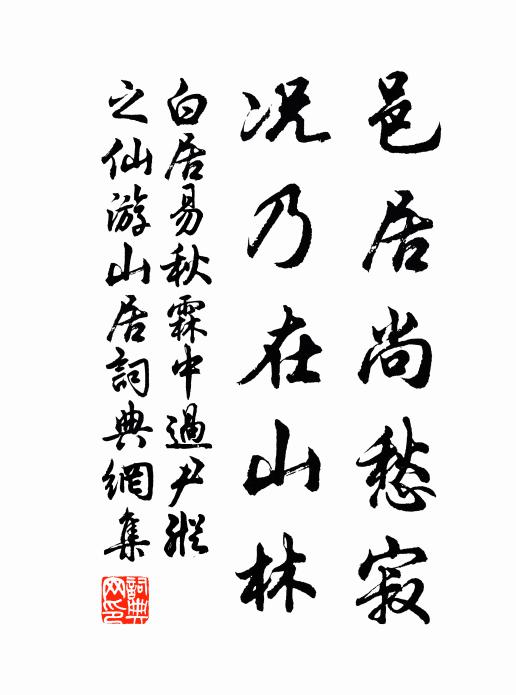 邑居尚愁寂
况乃在山林
白居易秋霖中過尹縱
之仙游山居詞典網集
詞典网印